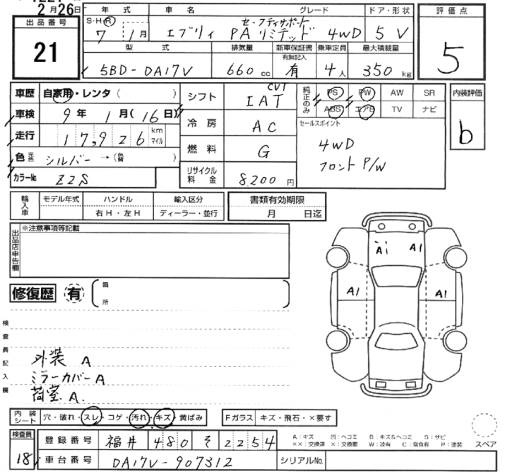 2月26日
出品番号
21
年式
車名
グレード
ドア・形状
評価点
S・H・R 7年 1月
エブリィ
セーフティサポート
PAリミテッド 4WD
5 V
5
型式
排気量
新車保証書
有無記入
乗車定員
最大積載量
5BD-DA17V
660cc
有
4人
350kg
車歴 自家用・レンタ( )
車検 9年1月(16)日
走行 17,926 km マイル
色 シルバー →(替)
カラーNo Z2S
シフト CVT IAT
冷房 AC
燃料 G
リサイクル料金 8200円
純正のみ
PS PW AW SR
ABS エアB TV ナビ
セールスポイント
4WD
フロントP/W
内装評価
b
輸入車
モデル年式
ハンドル
輸入区分
右H・左H
ディーラー・並行
書類有効期限
月 日迄
出品店申告欄
※注意事項等記載
修復歴 有
箇所
検査員記入欄
外装 A
ミラーカバー A
荷室 A
A1 A1
A1 A1
内装シート
穴・破れ・スレ・コゲ・汚れ・キズ・黄ばみ
Fガラス キズ・飛石・×要す
スペア
検査員
18
登録番号 福井 480 そ 2254
車台番号 DA17V-907312
シリアルNo.